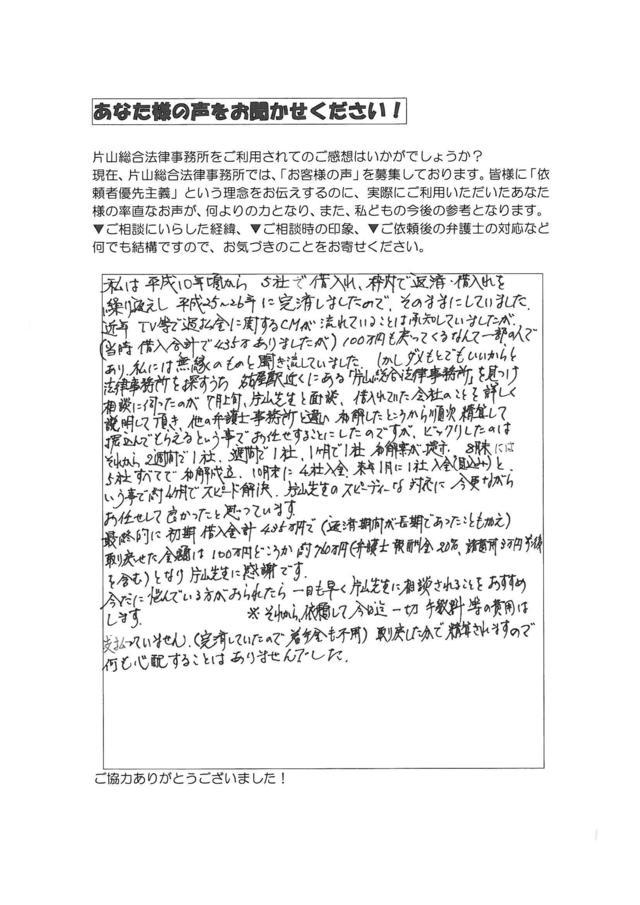 あなた様の声をお聞かせください！
片山総合法律事務所をご利用されてのご感想はいかがでしょうか？
現在、片山総合法律事務所では、「お客様の声」を募集しております。皆様に「依
頼者優先主義」という理念をお伝えするのに、実際にご利用いただいたあなた
様の率直なお声が、何よりの力となり、また、私どもの今後の参考となります。
▼ご相談にいらした経緯、▼ご相談時の印象、▼ご依頼後の弁護士の対応など
何でも結構ですので、お気づきのことをお寄せください。
私は平成10年頃から 5社で借入れ、枠内で返済・借入れを
繰り返えし 平成25～26年に完済しましたので、そのままにしていました。
近年 TV等で過払金に関するCMが流れていることは承知していましたが、
(当時 借入合計で435万ありましたが) 100万円も戻ってくるなんて一部の人で
あり、私には無縁のものと聞き流していました。しかしダメもとでもいいからと
法律事務所を探すうち 名古屋駅近くにある「片山総合法律事務所」を見つけ
相談に伺ったのが7月上旬、片山先生と面談、借入れていた会社のことを詳しく
説明して頂き、他の弁護士事務所と違い 和解したところから順次精算して
振込んでもらえるという事でお任せすることにしたのですが、ビックリしたのは
それから2週間で1社、週間で1社、1ヶ月で1社 和解案が 8月末には
5社すべてで和解成立、10月末に4社入金、来年1月に1社入金(見込み)と
いう事で約4ヶ月でスピード解決、片山先生のスピーディーな対応に 今更ながら
お任せして良かったと思っています。
最終的に初期借入合計435万円で(返済期間が長期であったことも加え)
取戻せた金額は100万円どころか約760万円(弁護士報酬金20%、諸費用3万円前後
を含む)となり片山先生に感謝です。
今だに悩んでいる方があられたら 一日も早く片山先生に相談されることをおすすめ
します。 ※それから、依頼して今日迄一切手数料等の費用は
支払っていません。(完済していたので着手金も不用) 取戻した分で精算されますので
何も心配することはありませんでした。
ご協力ありがとうございました！